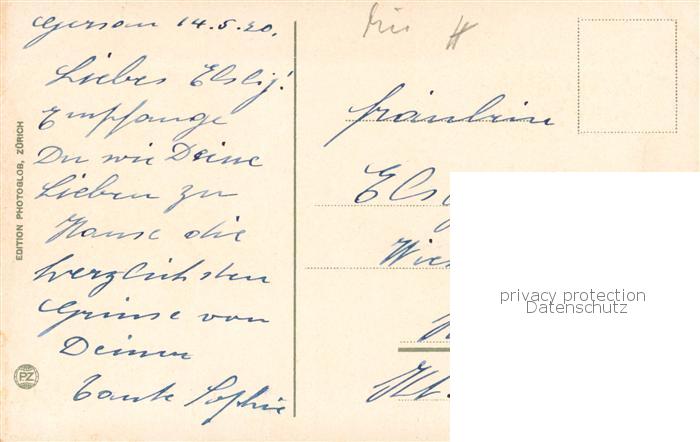 Gersau 14.5.20.
Liebes Elsig!
Empfange
Du wie Deine
Lieben zu
Hause die
herzlichsten
Grüsse von
Deiner
Tante Sophie
Fräulein
EDITION PHOTOGLOB, ZÜRICH
PZ
privacy protection
Datenschutz